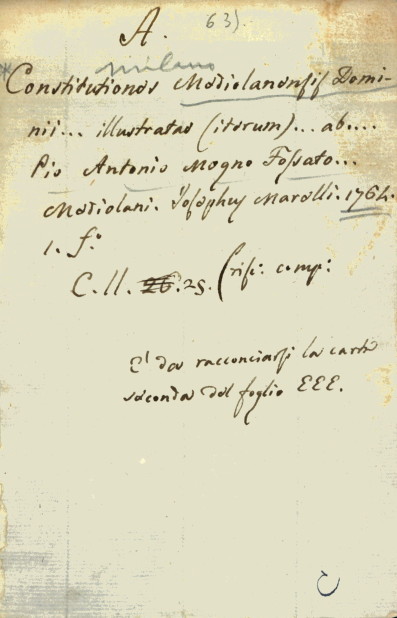 A. 63).
milano
* Constitutiones Mediolanensis Domi-
nii... illustratae (iterum)... ab...
Pio Antonio Mogno Fossato...
Mediolani. Josephus Marelli. 1764.
1. f.º
C. ll. 26. 25. (risc: comp:
E' da racconciarsi la carta
seconda del foglio EEE.